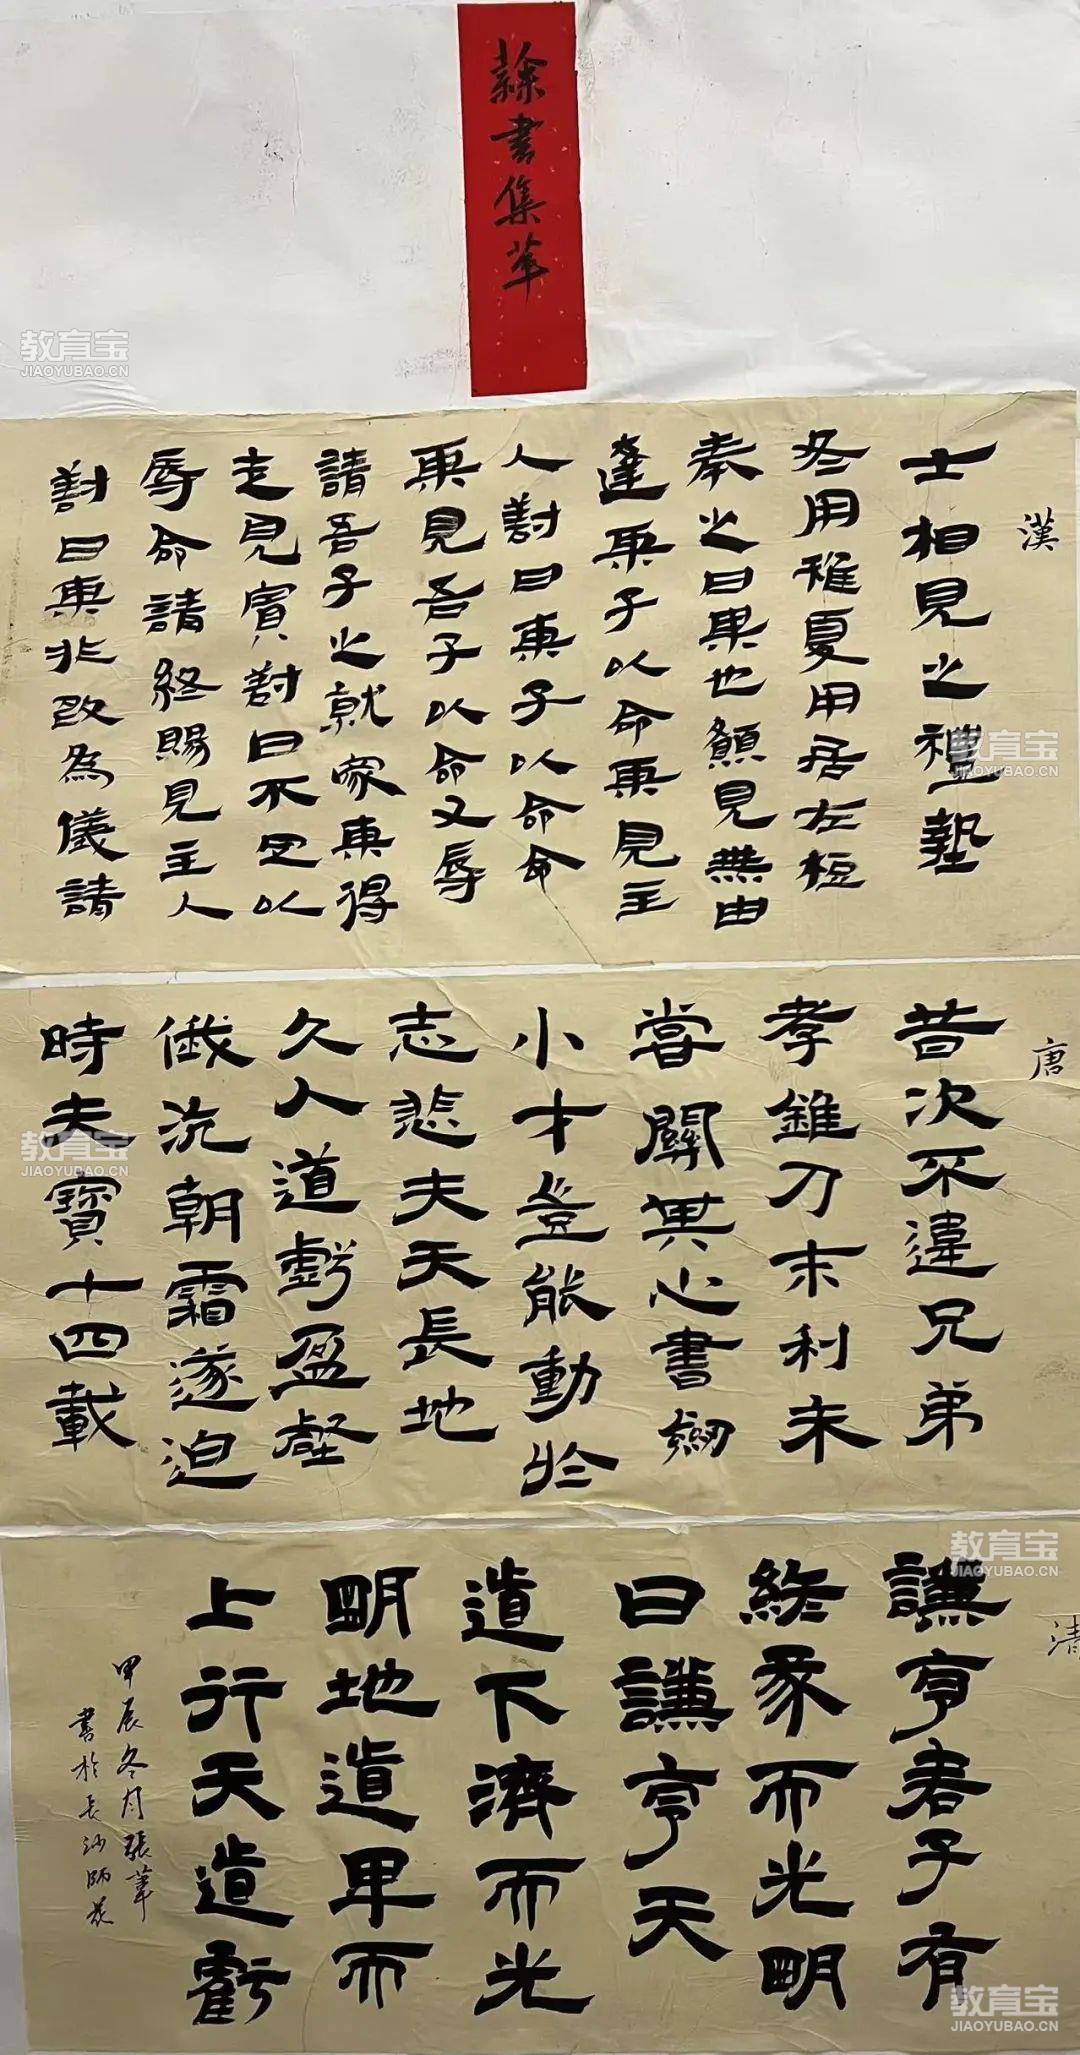 隸書集萃
漢
士相見之禮墊
冬用稚夏用居左梪
奉之曰某也願見無由
達某子以命某見主
人對曰某子以命命
某見吾子以命又辱
請吾子之就家某得
走見賓對曰不足以
辱命請終賜見主人
對曰某非改為儀請
唐
昔次不違兄弟
孝錐刀末利未
嘗關其心書劒
小才豈能動於
志悲夫天長地
久人道虧盈壑
俄沉朝霜遂迫
時夫寶十四載
清
謙亨君子有
終彖而光明
曰謙亨天
道下濟而光
明地道卑而
上行天道虧
甲辰冬月張葦
書於長沙師范
教育宝
JIAOYUBAO.CN
教育宝
JIAOYUBAO.CN
教育宝
JIAOYUBAO.CN
教育宝
JIAOYUBAO.CN
教育宝
JIAOYUBAO.CN